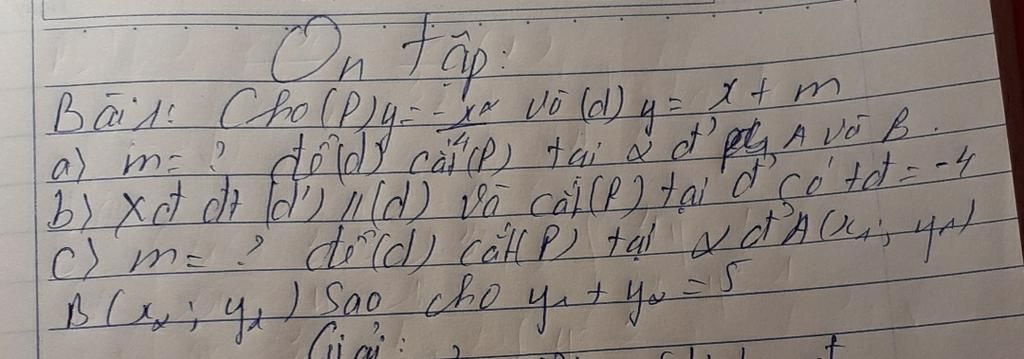 Ôn tập:
Bài 1: Cho (P) y = -x²/4 và (d) y = x + m
a) m = ? để (d) cắt (P) tại 2 đ' A và B.
b) Xđ đt (d') // (d) và cắt (P) tại đ' có tđ = -4
c) m = ? để (d) cắt (P) tại 2 đ' A (x₁; y₁)
B (x₂; y₂) Sao cho y₁ + y₂ = 5
Giải: